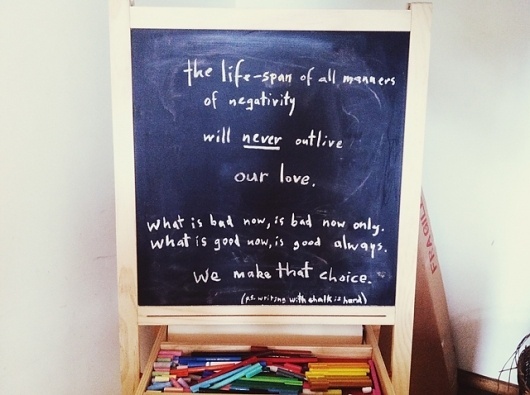 the life-span of all manners
of negativity
will never outlive
our love.
what is bad now, is bad now only.
what is good now, is good always.
We make that choice.
(ps. writing with chalk is hard)
FRAGIL